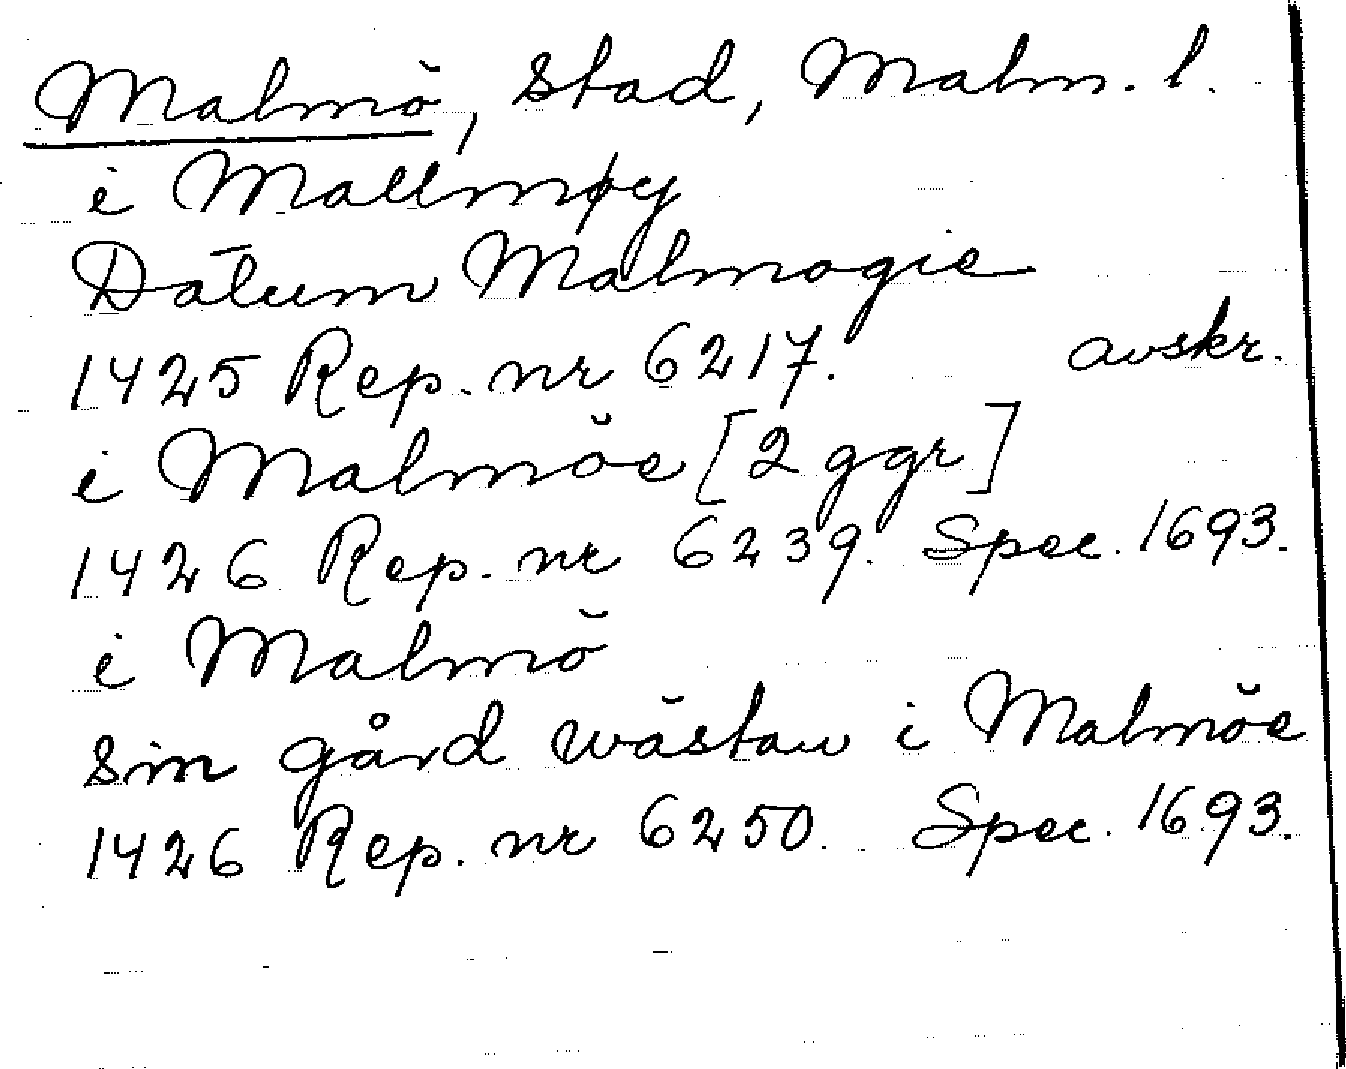 Malmö, stad, Malm. l.
i Mallmøy
Datum Malmogie
1425 Rep. nr 6217. avskr.
i Malmöe [2 ggr]
1426 Rep. nr 6239. Spec. 1693.
i Malmö
sin gård wästan i Malmöe
1426 Rep. nr 6250. Spec. 1693.